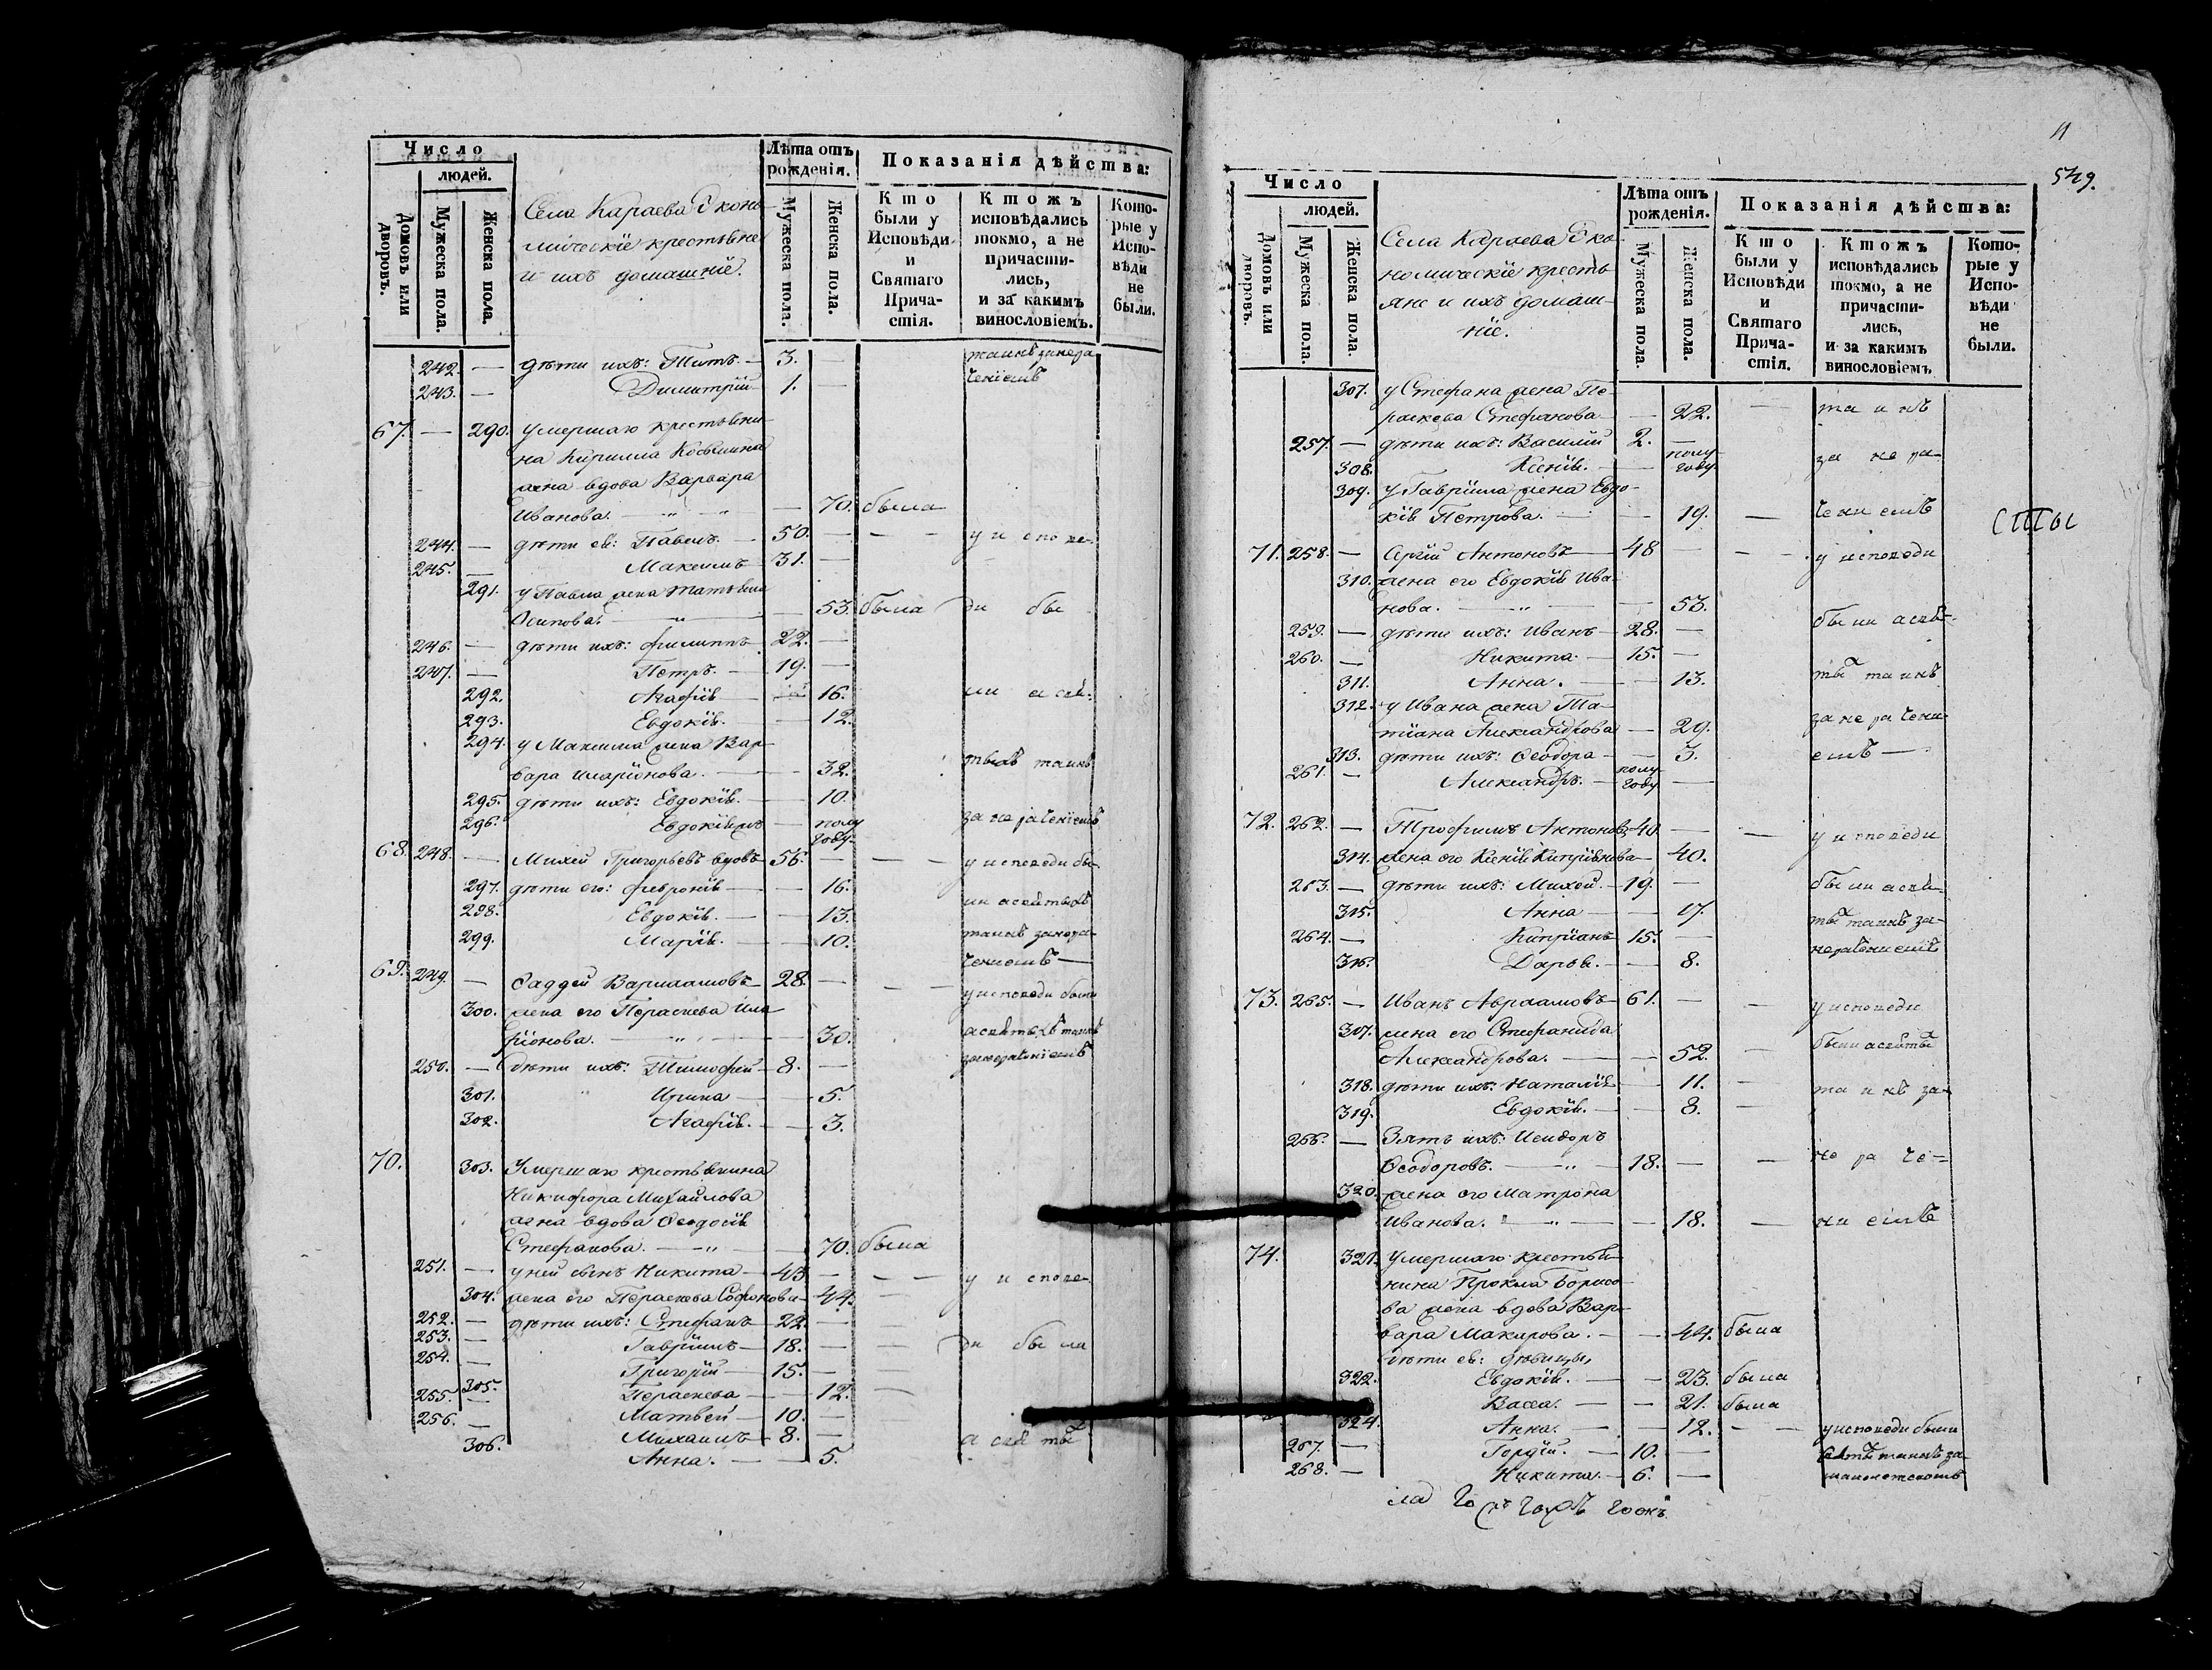 Число
людей.
Домовъ или дворовъ.
Мужеска пола.
Женска пола.
Села Караева Эконо-
мическіе крестьяне
и ихъ домашніе.
Лѣта отъ рожденія.
Мужеска пола.
Женска пола.
Показанія дѣйства:
Кто были у Исповѣди и Святаго Причастія.
Ктожъ исповѣдались токмо, а не причастились, и за какимъ винословіемъ.
Которые у Исповѣди не были.
242. — дѣти ихъ: Титъ. — 3. —
243. — Димитрій — 1. —
67. — 290. умершаго крестьяни-
на Кирилла Косьмина
жена вдова Варвара
Иванова. — 70. была
244. — дѣти ея: Павелъ. — 50. — у испове-
245. — Максимъ — 31. —
291. у Павла жена Татьяна
Осипова. — 53. была ди бы
246. — дѣти ихъ: Филиппъ — 22. —
247. — Петръ. — 19. —
292. Агафія — 16. ли а свя-
293. Евдокія. — 12.
294. у Максима жена Вар-
вара Иларіонова. — 32. тыхъ таинъ
295. дѣти ихъ: Евдокія. — 10.
296. Евдокія — полу году за нераченіемъ
68. 248. — Михей Григорьевъ вдовъ 56. — у исповеди бы-
297. дѣти его: Февронія — 16.
298. Евдокія. — 13. ли а святыхъ
299. Марія. — 10. таинъ за нера-
ченіемъ —
69. 249. — Фаддей Варлаамовъ 28. — у исповеди были
300. жена его Пераскева Ила-
ріонова. — 30. а святыхъ таинъ
250. — дѣти ихъ: Тимофей — 8. — за нераченіемъ
301. Ирина — 5.
302. Агафія. — 3.
70. 303. Умершаго крестьянина
Никифора Михайлова
жена вдова Феодосія
Стефанова. — 70. была
251. — у ней сынъ Никита — 43 — у испове-
304. жена его Пераскева Софонова — 44.
252. — дѣти ихъ: Стефанъ — 22 —
253. — Гавріилъ — 18. — ди были
254. — Григорій — 15. —
305. Пераскева — 12.
255. — Матвей — 10. —
256. — Михаилъ — 8. —
306. Анна. — 5. а святы
11
549.
Число
людей.
Домовъ или дворовъ.
Мужеска пола.
Женска пола.
Села Караева Эко-
номическіе кресть-
яне и ихъ домаш-
ніе.
Лѣта отъ рожденія.
Мужеска пола.
Женска пола.
Показанія дѣйства:
Кто были у Исповѣди и Святаго Причастія.
Ктожъ исповѣдались токмо, а не причастились, и за какимъ винословіемъ
Которые у Исповѣди не были.
307. у Стефана жена Пе-
раскева Стефанова — 22. — таинъ
257. — дѣти ихъ: Василій 2. —
308. Ксенія. — полу году за нера-
309. у Гавріила жена Евдо-
кія Петрова. — 19. — ченіемъ
71. 258. — Сергій Антоновъ — 48 — у исповеди
310. жена его Евдокія Ива-
нова. — 53.
259. — дѣти ихъ: Иванъ — 28. — были а свя-
260. — Никита — 15. —
311. Анна. — 13. тыхъ таинъ
312. у Ивана жена Та-
тіана Александрова — 29. за нерачени-
313. дѣти ихъ: Феодора — 3. емъ —
261. — Александръ. — полу году —
72. 262. — Трофимъ Антоновъ 40 — у исповеди
314. жена его Ксенія Кипріянова — 40.
263. — дѣти ихъ: Михей. — 19. — были а свя-
315. Анна — 17. тыхъ таинъ за-
264. — Кипріанъ — 15. — нераченіемъ
316. Дарья. — 8.
73. 265. — Иванъ Авраамовъ — 61. — у исповеди
307. жена его Стефанида
Александрова. — 52. были а святыхъ
318. дѣти ихъ: Наталія — 11. — таинъ за-
319. Евдокія. — 8. —
266. — Зять ихъ: Исидоръ
Феодоровъ. — 18. — нераче-
320. жена его Матрона
Иванова. — 18. — ніемъ
74. 321. умершаго крестья-
нина Прокла Борисо-
ва жена вдова Вар-
вара Макарова. — 44. была
дѣти ея: дѣвицы,
322. Евдокія. — 23. была
Васса. — 21. была
324. Анна. — 12. — у исповеди были
267. — Гордѣй. — 10. —
268. — Никита. — 6. —